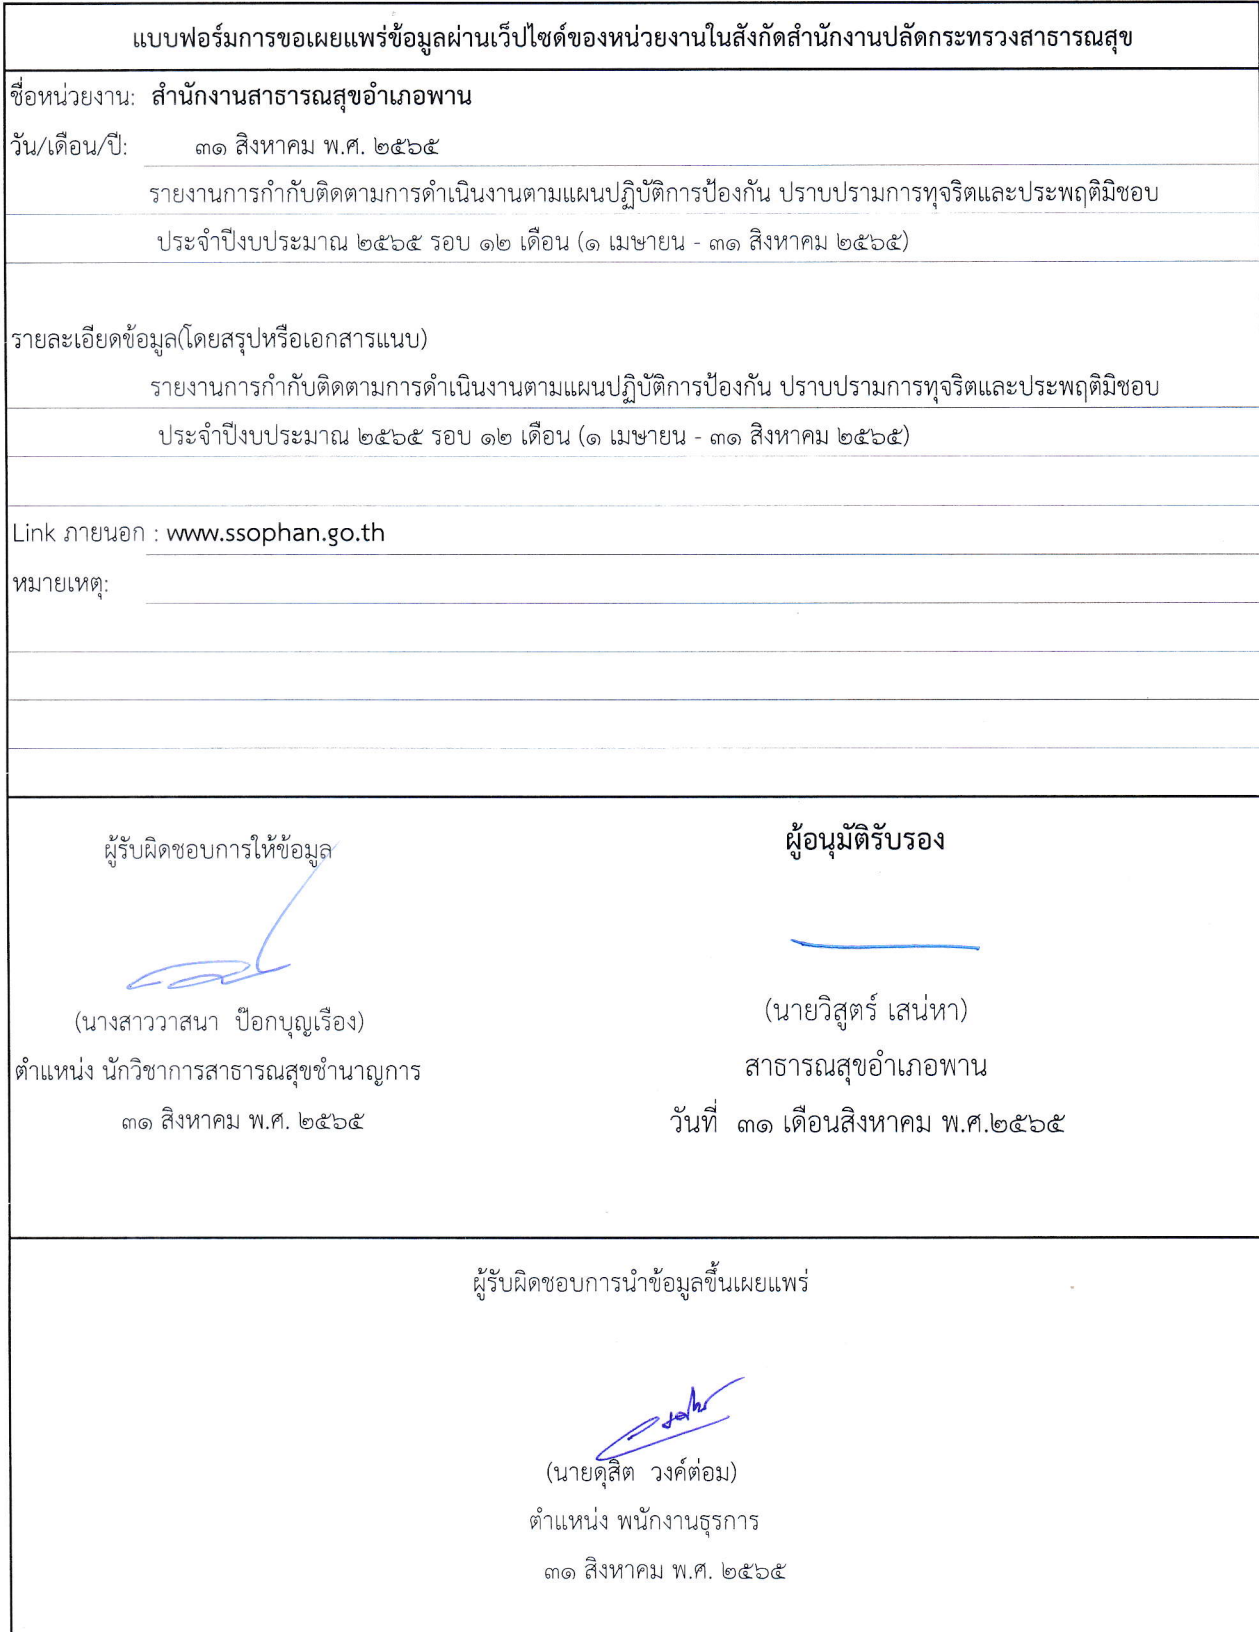 แบบฟอร์มการขอเผยแพร่ข้อมูลผ่านเว็ปไซต์ของหน่วยงานในสังกัดสำนักงานปลัดกระทรวงสาธารณสุข
ชื่อหน่วยงาน: สำนักงานสาธารณสุขอำเภอพาน
วัน/เดือน/ปี: ๓๑ สิงหาคม พ.ศ. ๒๕๖๕
รายงานการกำกับติดตามการดำเนินงานตามแผนปฏิบัติการป้องกัน ปราบปรามการทุจริตและประพฤติมิชอบ
ประจำปีงบประมาณ ๒๕๖๕ รอบ ๑๒ เดือน (๑ เมษายน - ๓๑ สิงหาคม ๒๕๖๕)
รายละเอียดข้อมูล(โดยสรุปหรือเอกสารแนบ)
รายงานการกำกับติดตามการดำเนินงานตามแผนปฏิบัติการป้องกัน ปราบปรามการทุจริตและประพฤติมิชอบ
ประจำปีงบประมาณ ๒๕๖๕ รอบ ๑๒ เดือน (๑ เมษายน - ๓๑ สิงหาคม ๒๕๖๕)
Link ภายนอก : www.ssophan.go.th
หมายเหตุ:
ผู้รับผิดชอบการให้ข้อมูล
ผู้อนุมัติรับรอง
(นางสาววาสนา ป๊อกบุญเรือง)
(นายวิสูตร์ เสน่หา)
ตำแหน่ง นักวิชาการสาธารณสุขชำนาญการ
สาธารณสุขอำเภอพาน
๓๑ สิงหาคม พ.ศ. ๒๕๖๕
วันที่ ๓๑ เดือนสิงหาคม พ.ศ.๒๕๖๕
ผู้รับผิดชอบการนำข้อมูลขึ้นเผยแพร่
(นายดุสิต วงค์ต่อม)
ตำแหน่ง พนักงานธุรการ
๓๑ สิงหาคม พ.ศ. ๒๕๖๕